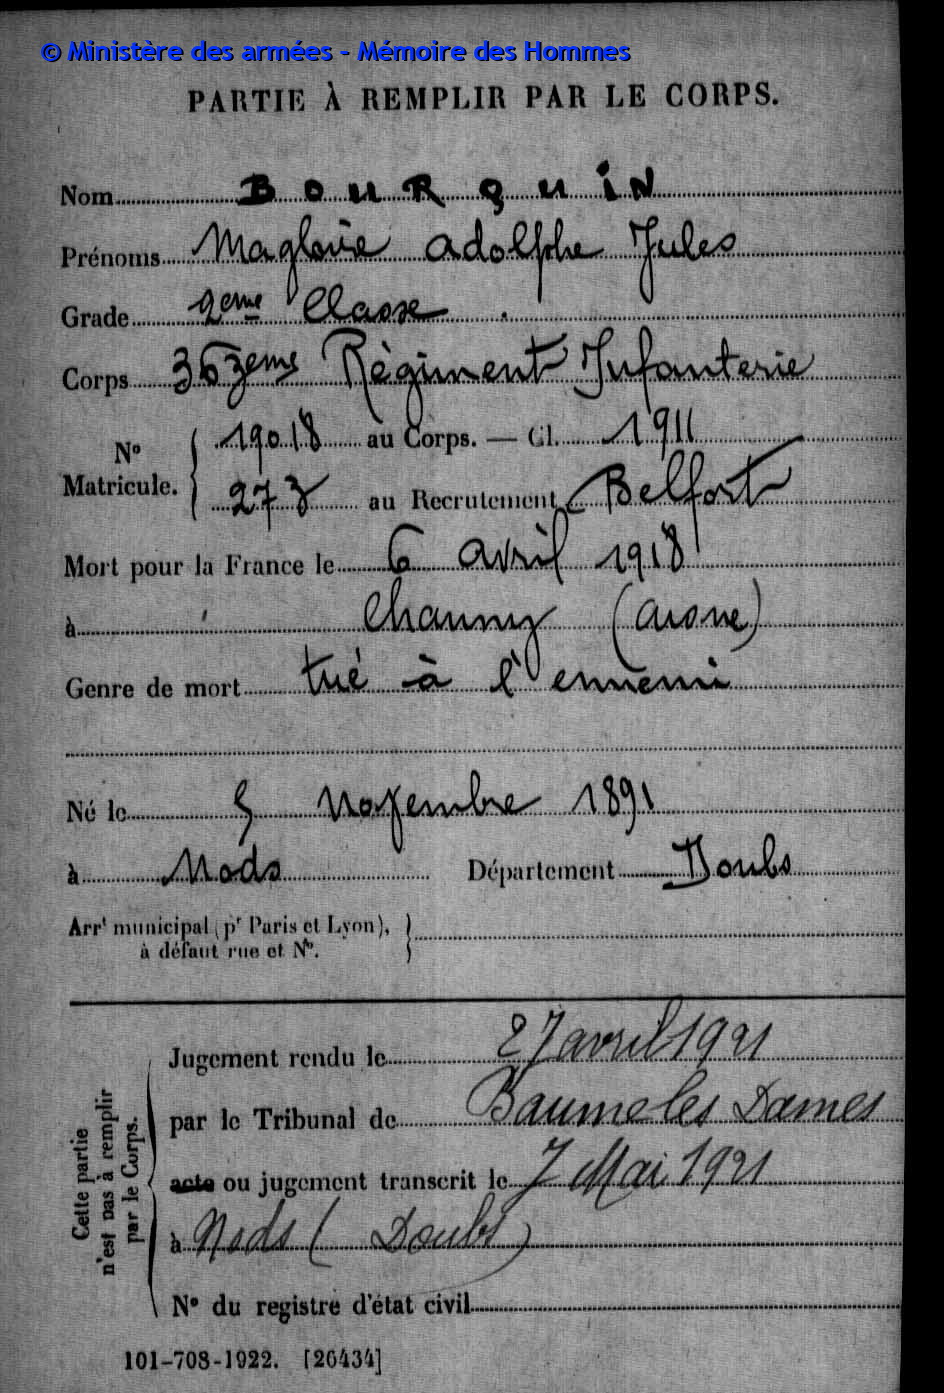 © Ministère des armées - Mémoire des Hommes
PARTIE À REMPLIR PAR LE CORPS.
Nom BOURQUIN
Prénoms Magloire Adolphe Jules
Grade 2eme Classe
Corps 363eme Régiment Infanterie
N° Matricule. { 19018 au Corps. — Cl. 1911
273 au Recrutement Belfort
Mort pour la France le 6 avril 1918
à Chauny (Aisne)
Genre de mort tué à l'ennemi
Né le 5 Novembre 1891
à Nods Département Doubs
Arrt municipal (pr Paris et Lyon), }
à défaut rue et N°.
Cette partie n'est pas à remplir par le Corps. {
Jugement rendu le 27 avril 1921
par le Tribunal de Baume les Dames
acte ou jugement transcrit le 7 Mai 1921
à Nods (Doubs)
N° du registre d'état civil
101-708-1922. [26434]